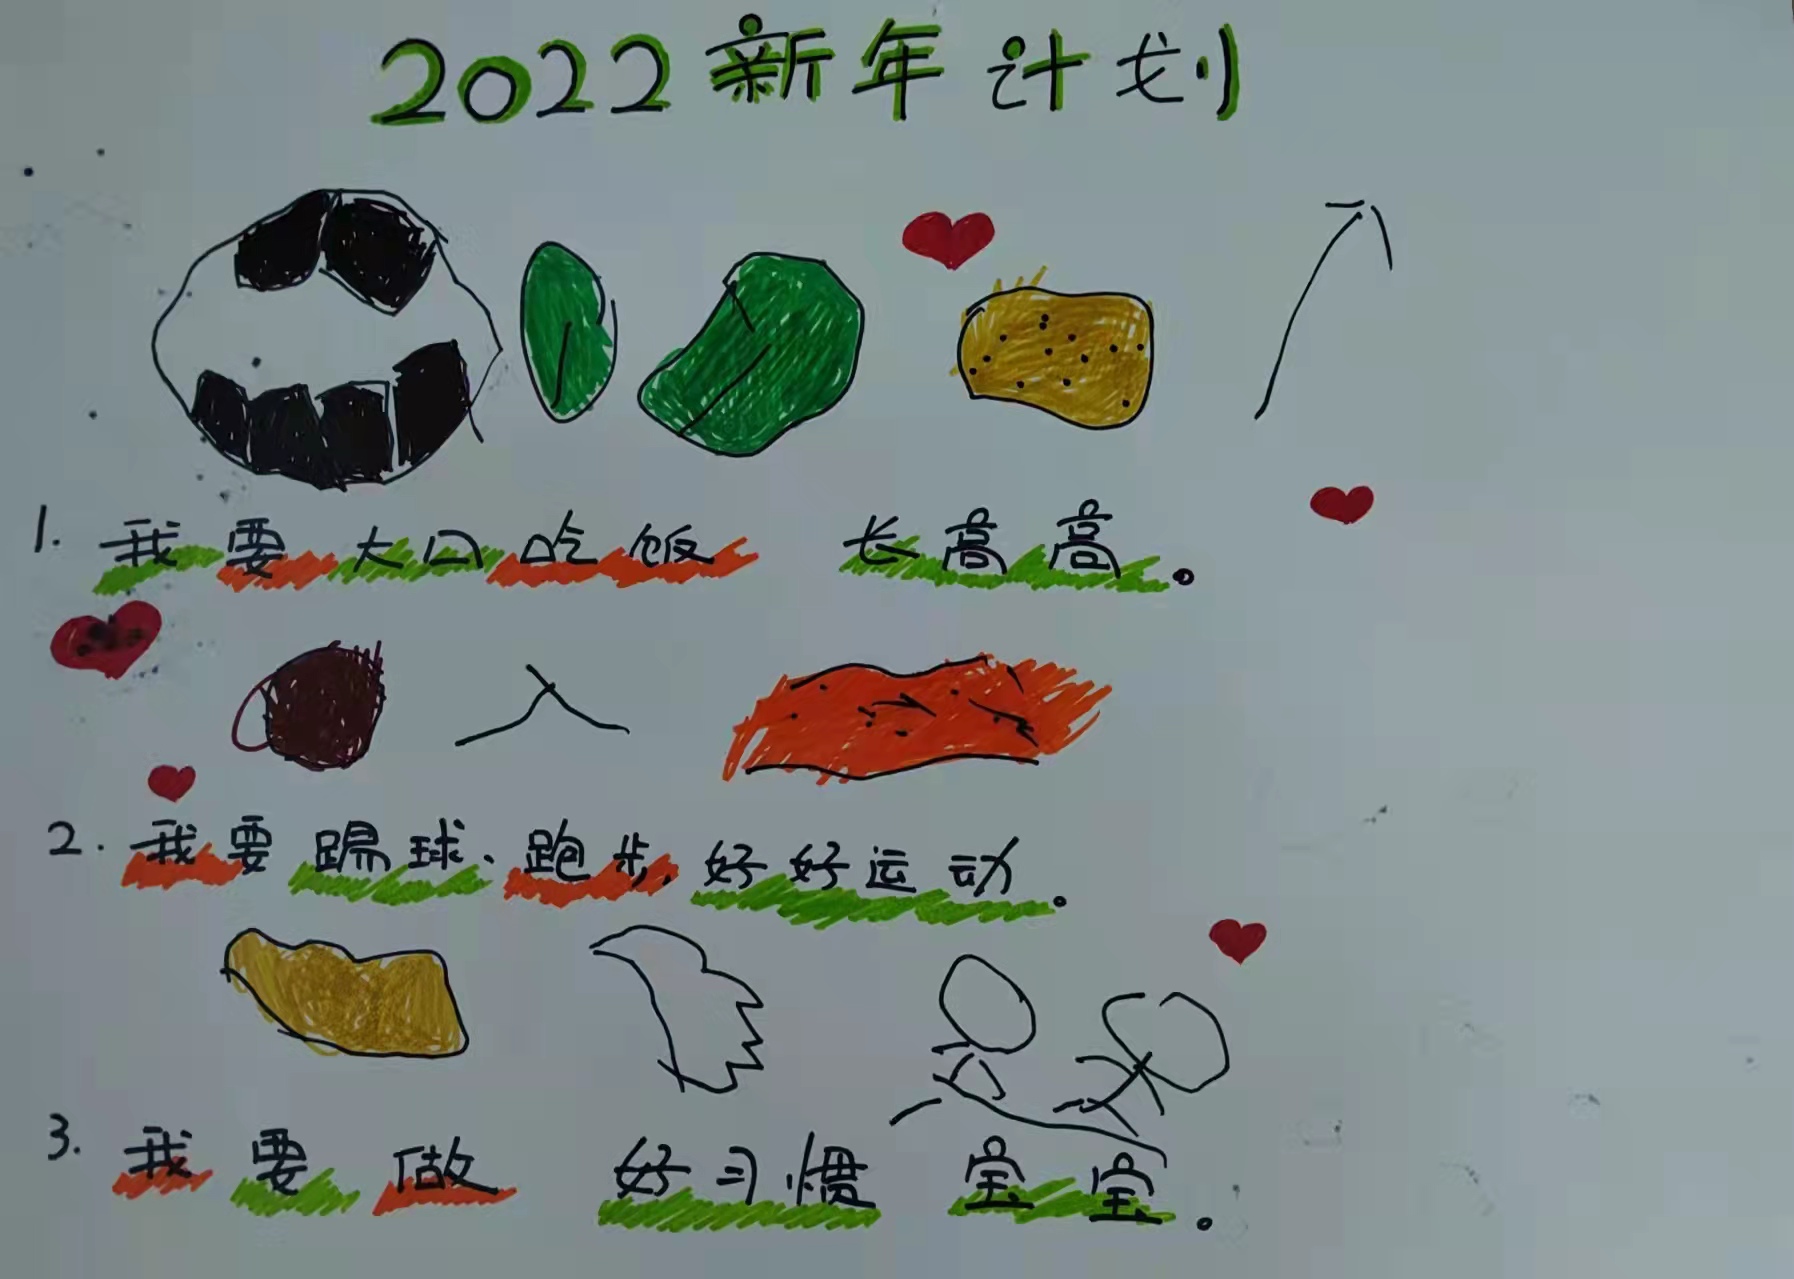 2022新年计划
1. 我要大口吃饭 长高高。
2. 我要踢球、跑步,好好运动。
3. 我要做 好习惯 宝宝。